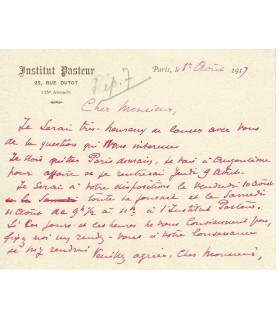 Institut Pasteur
25, RUE DUTOT
(15e Arrondt)
Rép. 7
Paris, le 1er Août 1917
Cher Monsieur,
Je serai très heureux de causer avec vous
de la question qui vous intéresse
Je dois quitter Paris demain, je vais à
pour affaire et je rentrerai Jeudi 9 Août.
Je serai à votre disposition le Vendredi 10 Août
toute la journée et le Samedi
11 Août de 9h 1/2 à 11h à l'Institut Pasteur.
Si ces jours et ces heures ne vous conviennent pas,
fixez moi un rendez-vous à votre convenance
je m'y rendrai
Veuillez agréer, Cher Monsieur,